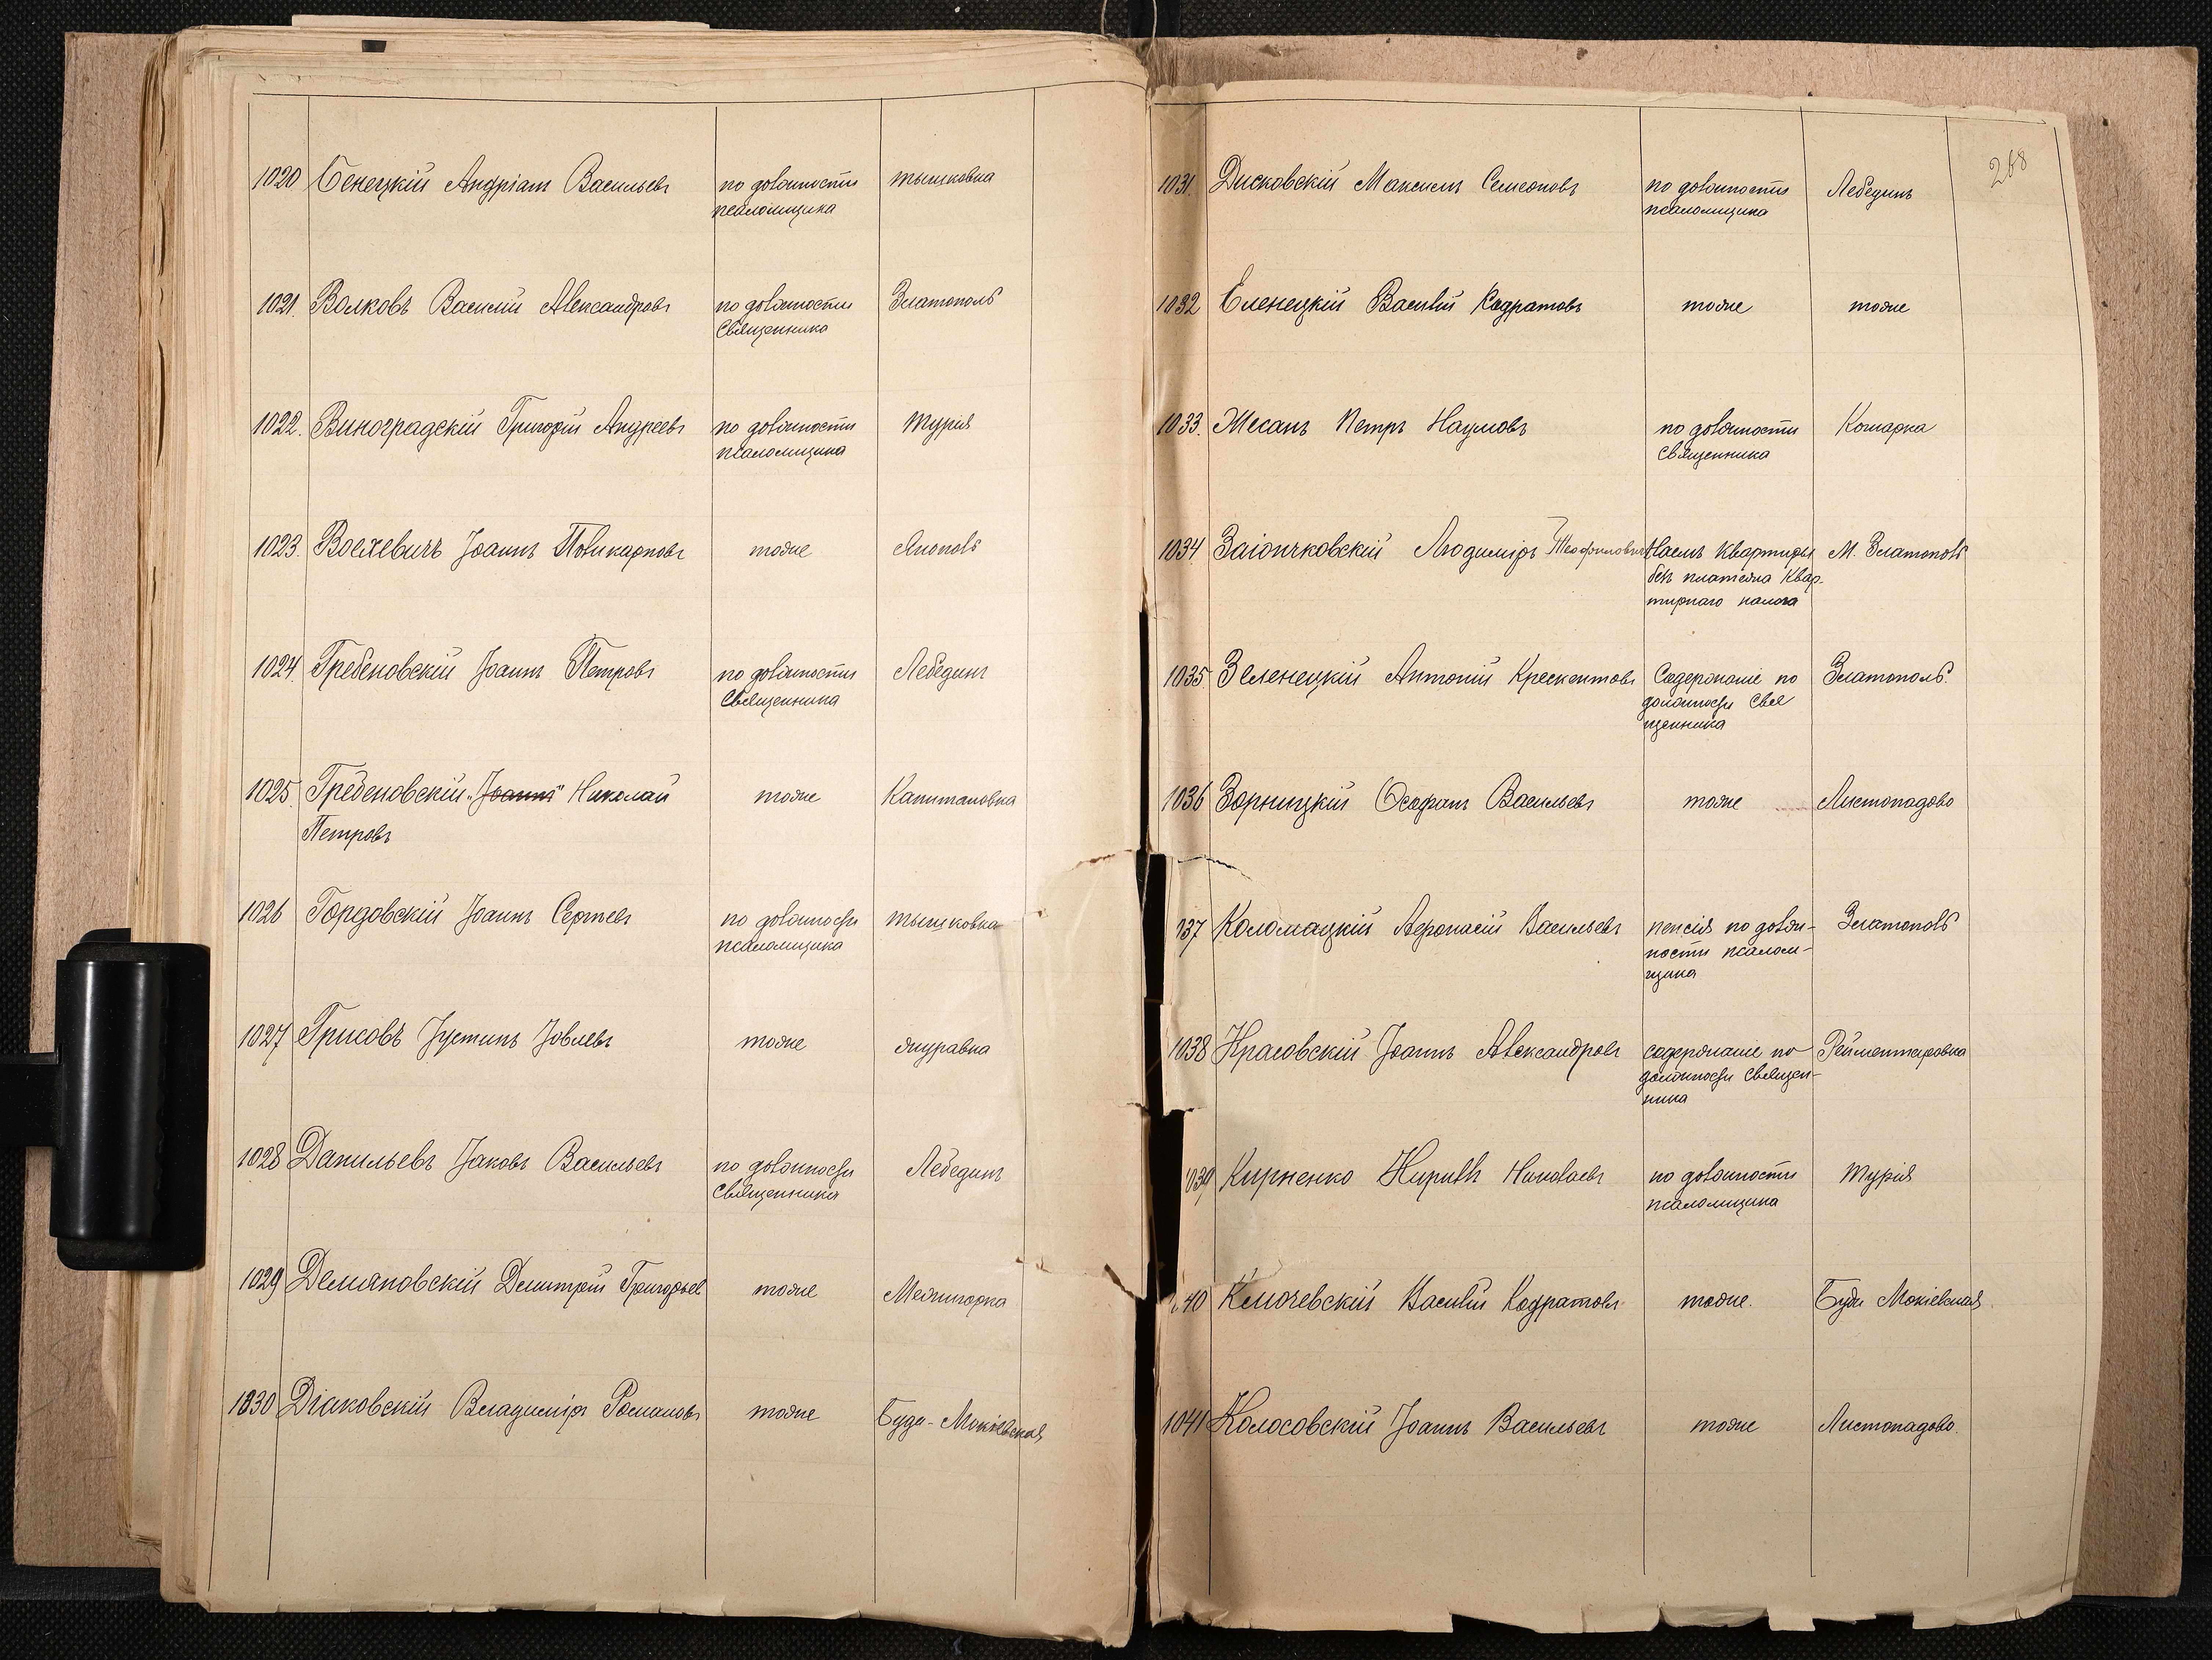 1020 Бенецкій Андріанъ Васильевъ по должности Тышковка
псаломщика
1021. Волковъ Василій Александровъ по должности Златополь
Священника
1022. Виноградскій Григорій Андреевъ по должности Турія
псаломщика
1023. Іоаннъ Поликарповъ тоже
1024. Гребеновскій Іоаннъ Петровъ по должности Лебединъ
Священника
1025. Гребеновскій „Іоаннъ" Николай тоже Капитановка
Петровъ
1026 Гордовскій Іоаннъ Сергѣевъ по должности Тышковка
псаломщика
1027 Грисовъ Іустинъ Іовлевъ тоже
1028 Данильевъ Іаковъ Васильевъ по должности Лебединъ
Священника
1029 Демяновскій Димитрій Григорьев тоже Межигорка
1030 Діаковскій Владиміръ Романовъ тоже Буда-Мокіевская
268
1031. Дисковскій Максимъ Семеоновъ по должности Лебединъ
псаломщика
1032 Еленецкій Василій Кодратовъ тоже тоже
1033. Жесанъ Петръ Наумовъ по должности Комарка
Священника
1034. Заіончковскій Людиміръ Теофиловичъ Наемъ квартиры М. Златополь
безъ платежа квар-
тирнаго налога
1035. Зеленецкій Антоній Крескентовъ Содержаніе по Златополь.
должности Свя
щенника
1036 Зорницкій Васильевъ тоже Листопадово
037 Коломацкій Васильевъ пенсія по долж- Златополь
ности псалом-
щика
1038 Іоаннъ Александровъ содержаніе по Рейментаровка
должности Священ-
ника
1039 Кириенко Кириллъ Николаевъ по должности Турія
псаломщика
1040 Ключевскій Василій Кодратовъ тоже. Буда Мокіевская
1041 Колосовскій Іоаннъ Васильевъ тоже Листопадово.